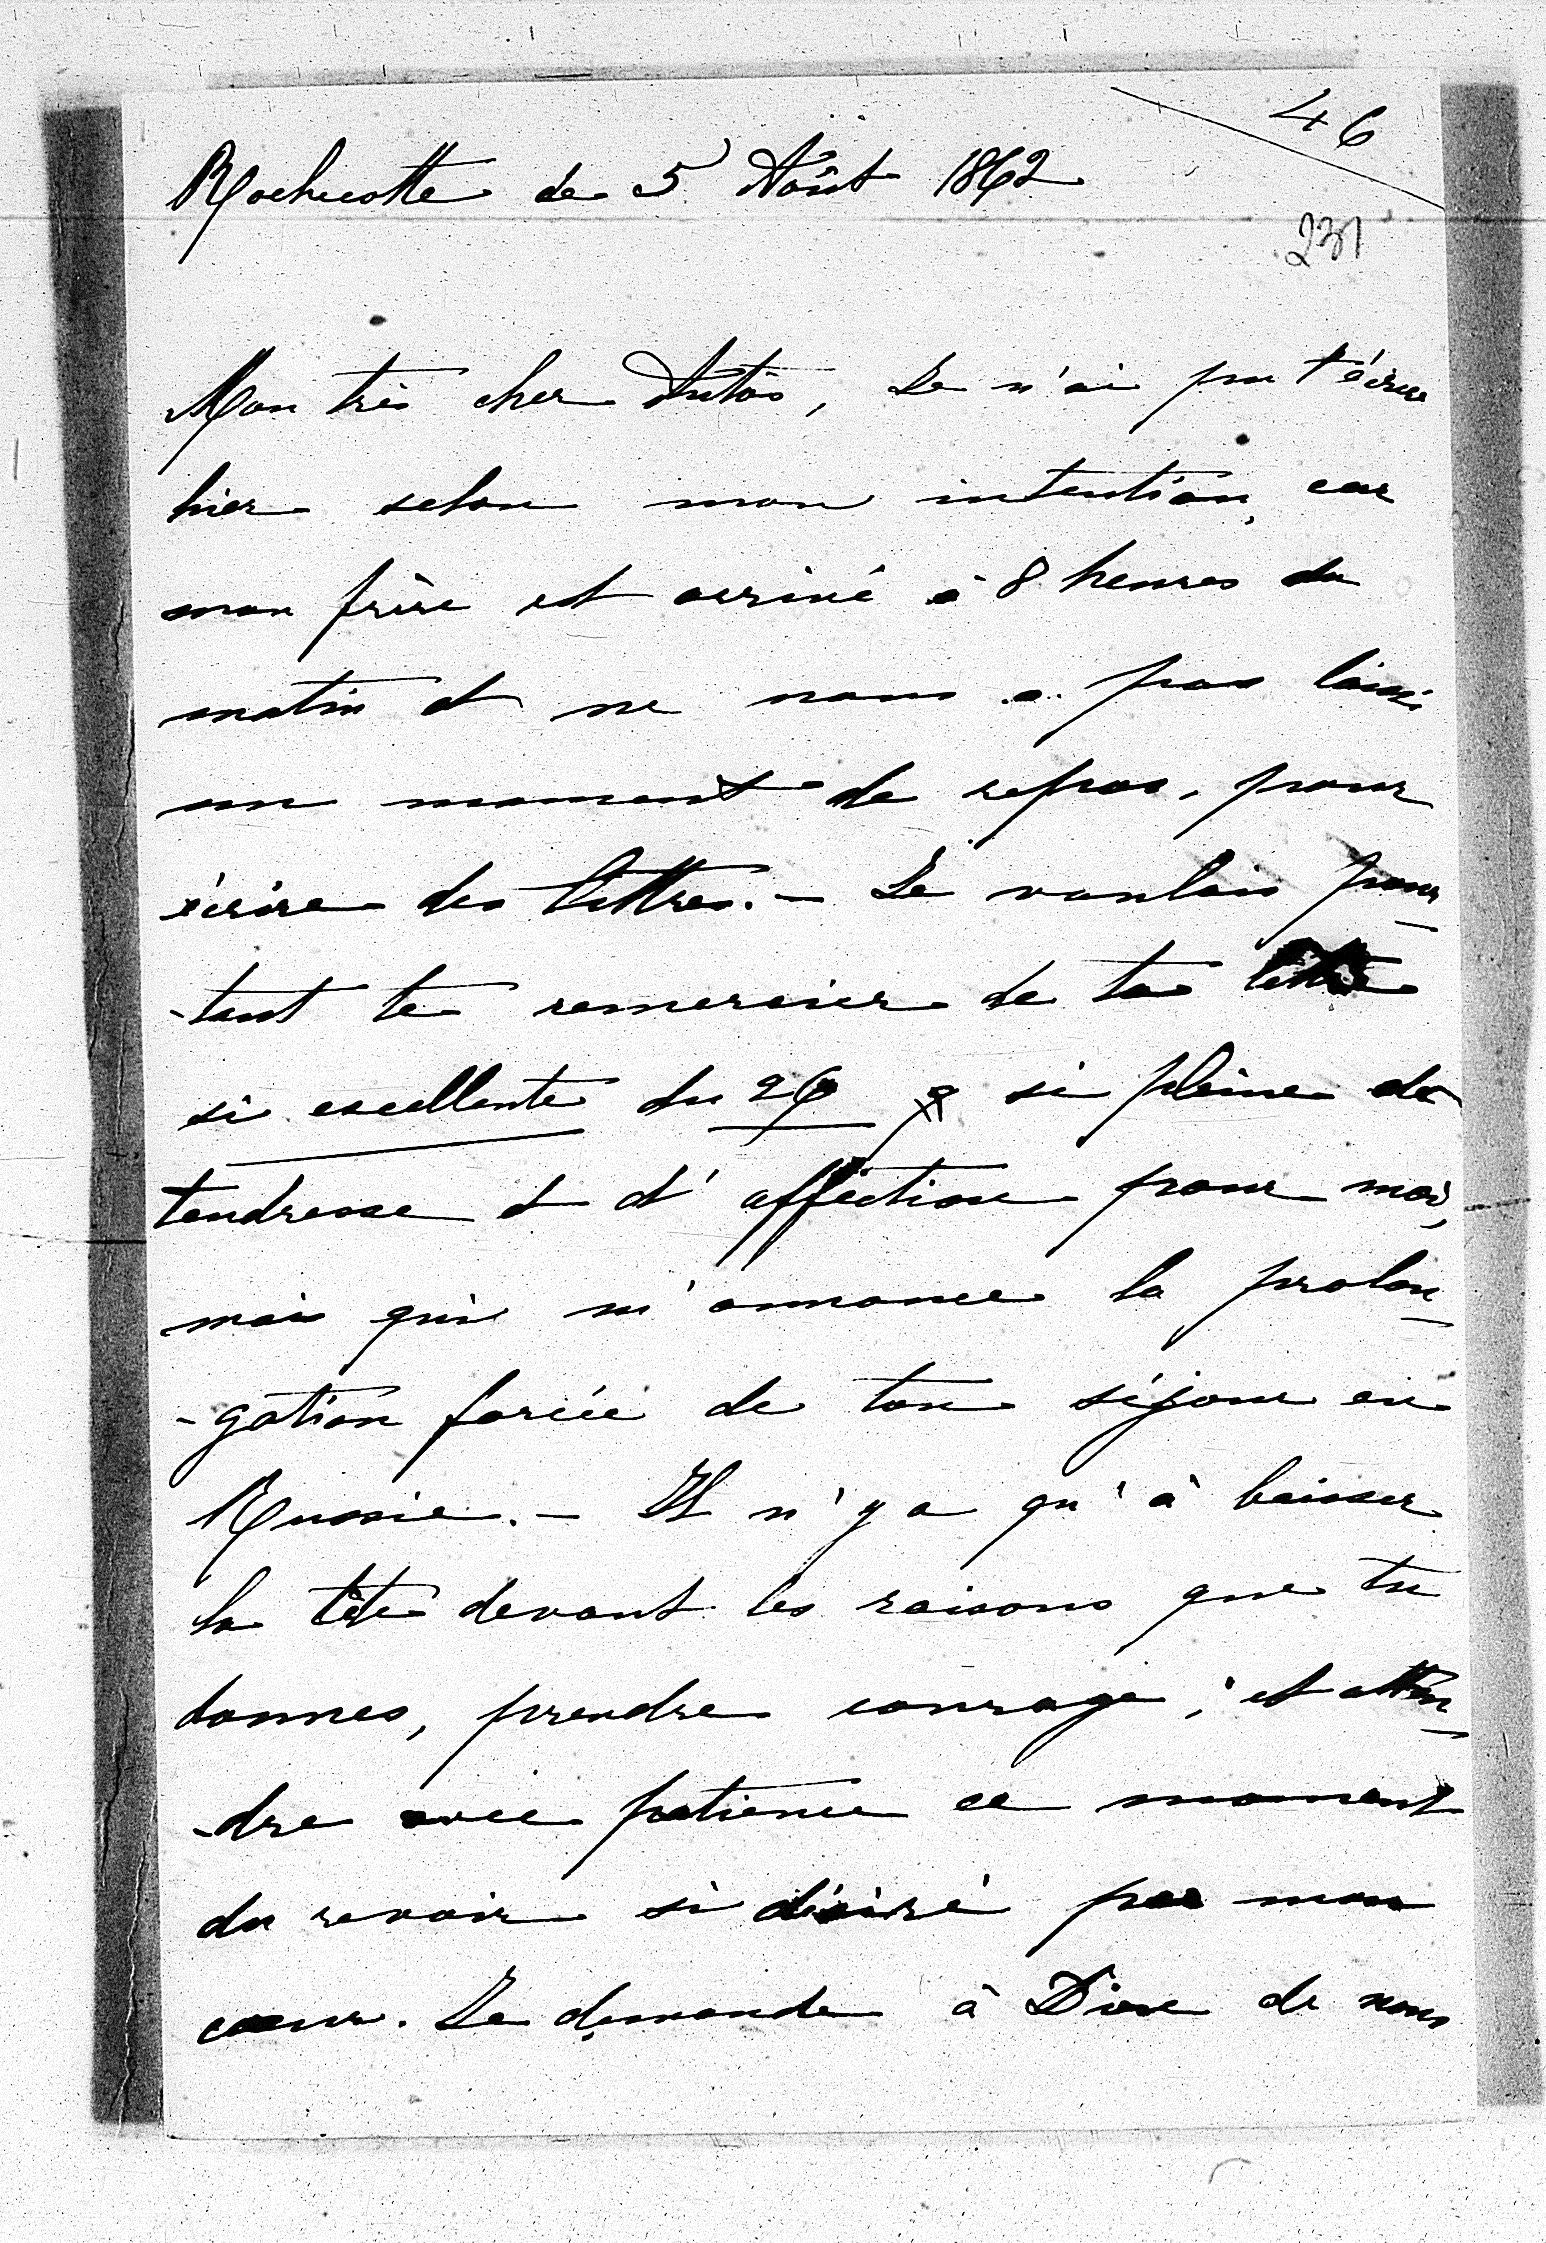 46
Rochecotte de 5 Août 1862
231
Mon très cher Antos, Je n'ai pu t'écrire
hier selon mon intention, car
mon frère est arrivé à 8 heures du
matin et ne nous a pas laissé
un moment de repos, pour
écrire des lettres. — Je voulais pour-
-tant te remercier de ta lettre
si excellente du 26 si pleine de
tendresse et d'affection pour moi,
mais qui m'annonce la prolon-
-gation forcée de ton séjour en
Russie. — Il n'y a qu'à baisser
la tête devant les raisons que tu
donnes, prendre courage, et atten-
-dre avec patience ce moment
du revoir si désiré par mon
cœur. Je demande à Dieu de nous